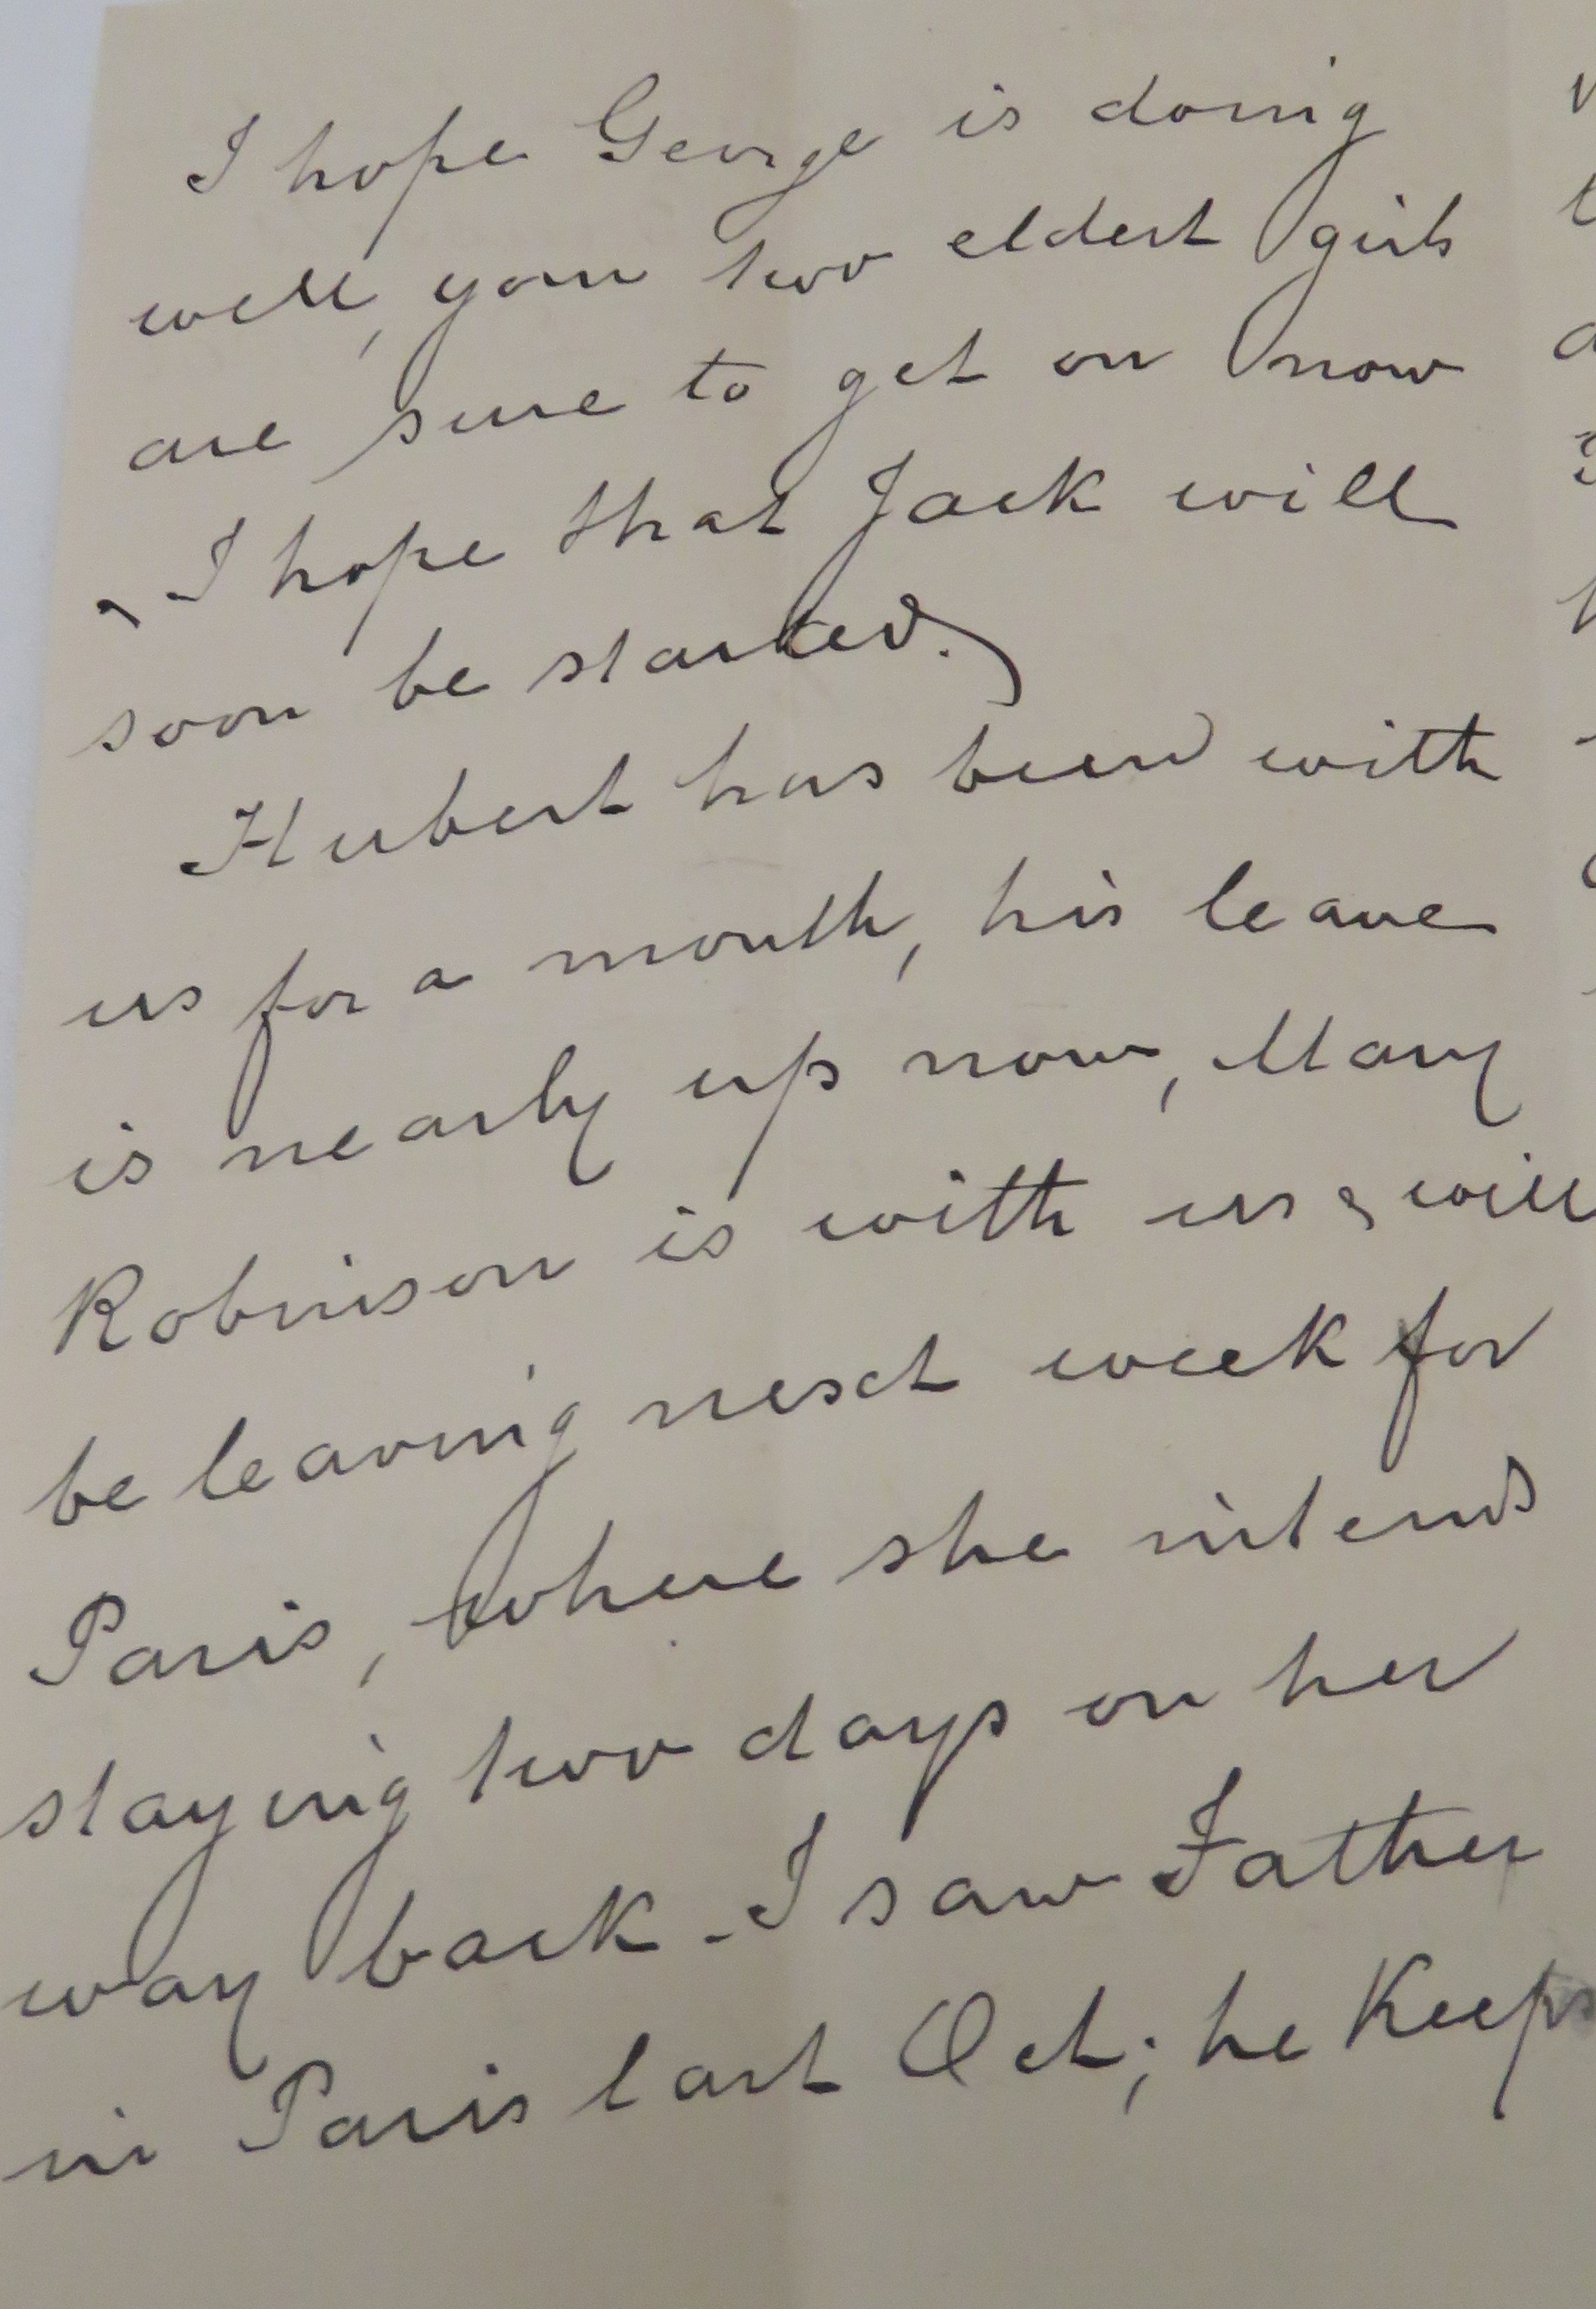 I hope George is doing
well, your two eldest girls
are sure to get on now
& I hope that Jack will
soon be started.
Hubert has been with
us for a month, his leave
is nearly up now, Mary
Robinson is with us & will
be leaving next week for
Paris, where she intends
staying two days on her
way back - I saw Father
in Paris last Oct; he keeps